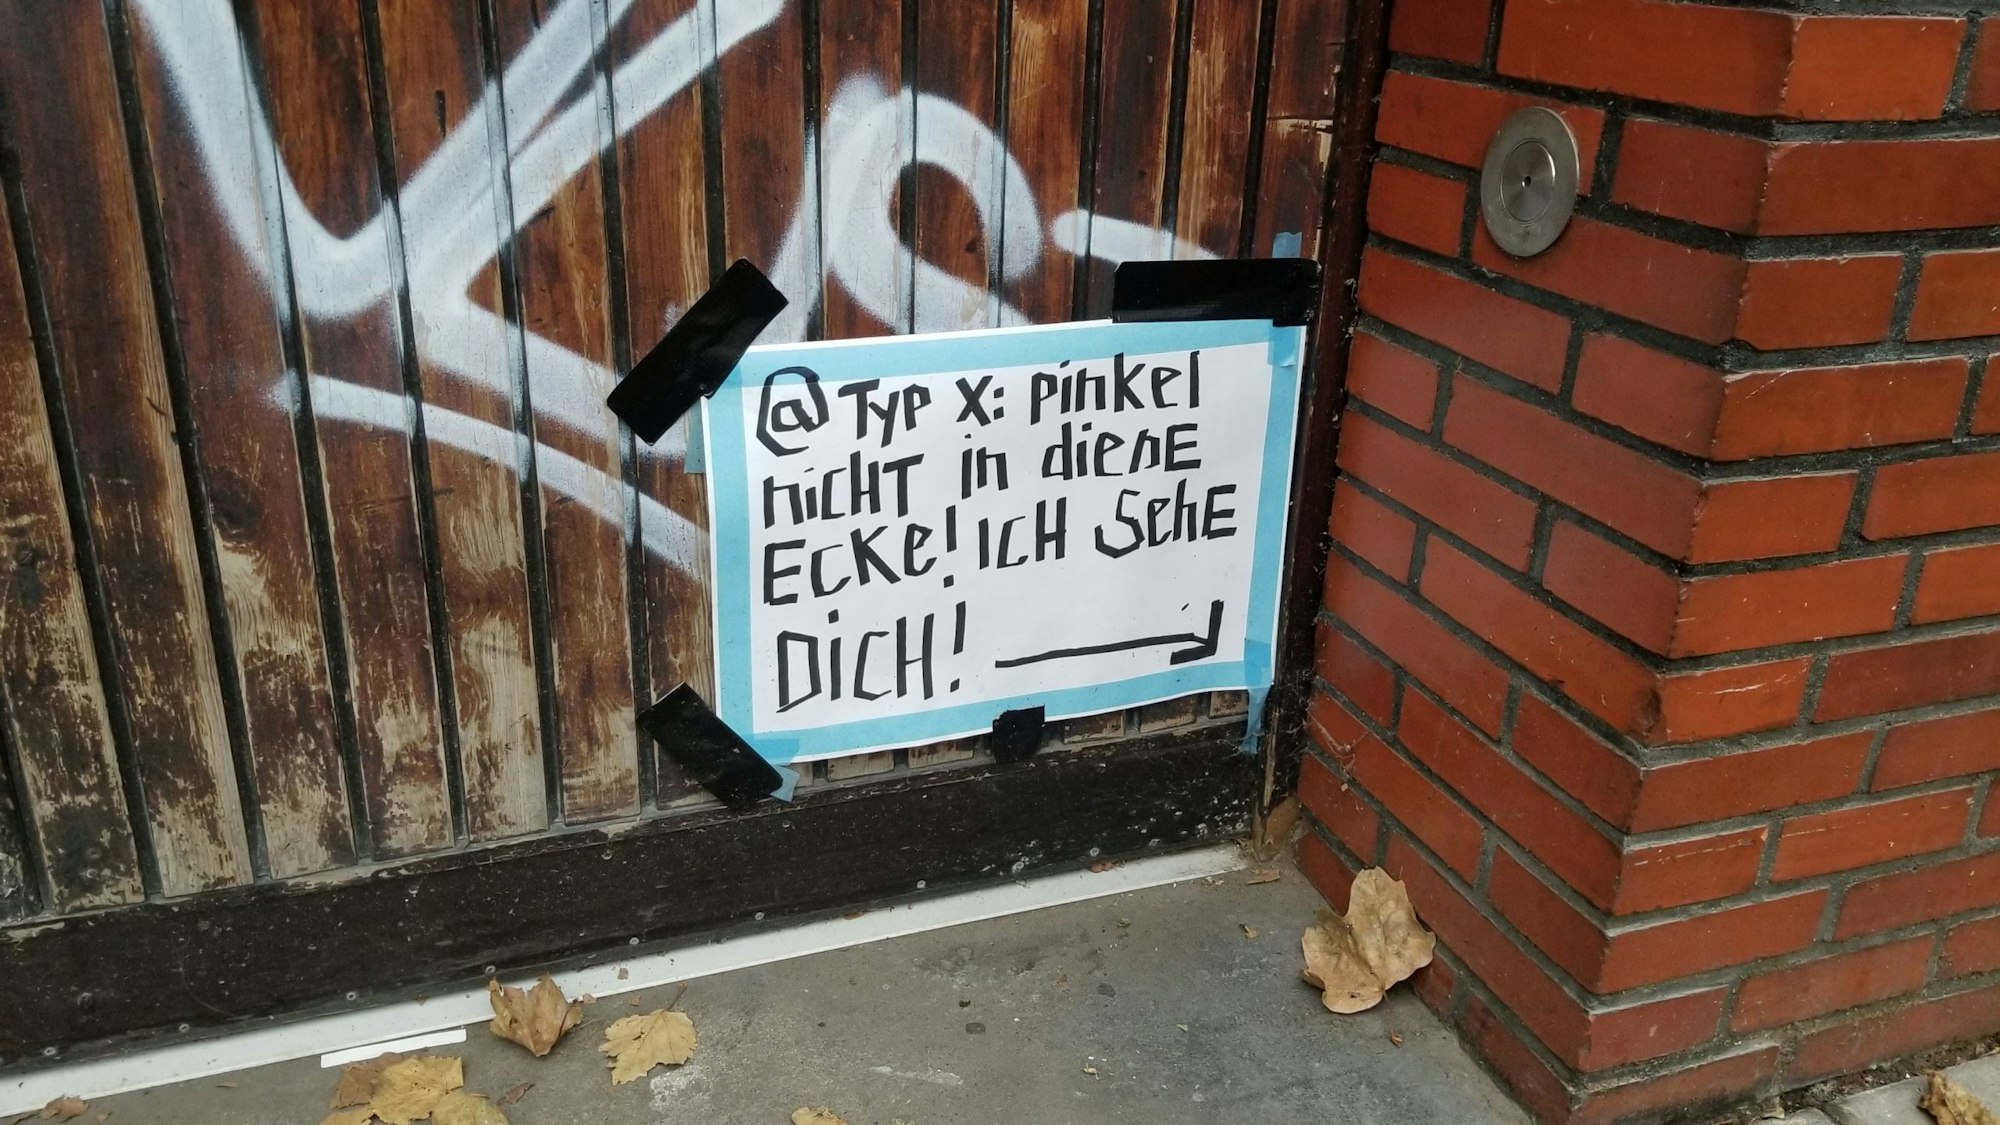 @ Typ X: pinkel
nicHT in dieDE
EcKe! IcH SehE
DicH!